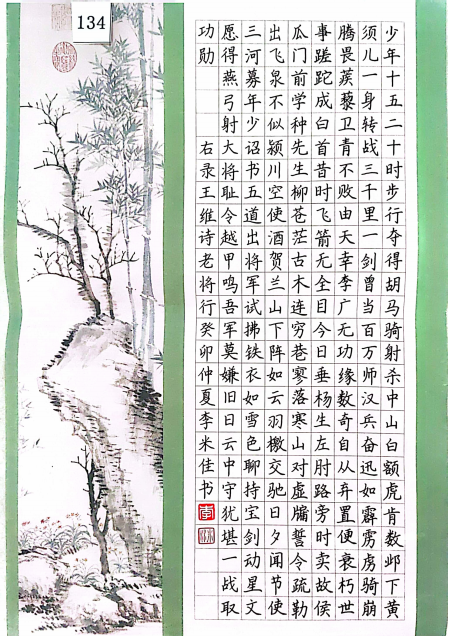 134
少年十五二十时步行夺得胡马骑射杀中山白额虎肯数邺下黄
须儿一身转战三千里一剑曾当百万师汉兵奋迅如霹雳虏骑崩
腾畏蒺藜卫青不败由天幸李广无功缘数奇自从弃置便衰朽世
事蹉跎成白首昔时飞箭无全目今日垂杨生左肘路旁时卖故侯
瓜门前学种先生柳苍茫古木连穷巷寥落寒山对虚牖誓令疏勒
出飞泉不似颍川空使酒贺兰山下阵如云羽檄交驰日夕闻节使
三河募年少诏书五道出将军试拂铁衣如雪色聊持宝剑动星文
愿得燕弓射大将耻令越甲鸣吾军莫嫌旧日云中守犹堪一战取
功勋 右录王维诗老将行癸卯仲夏李米佳书